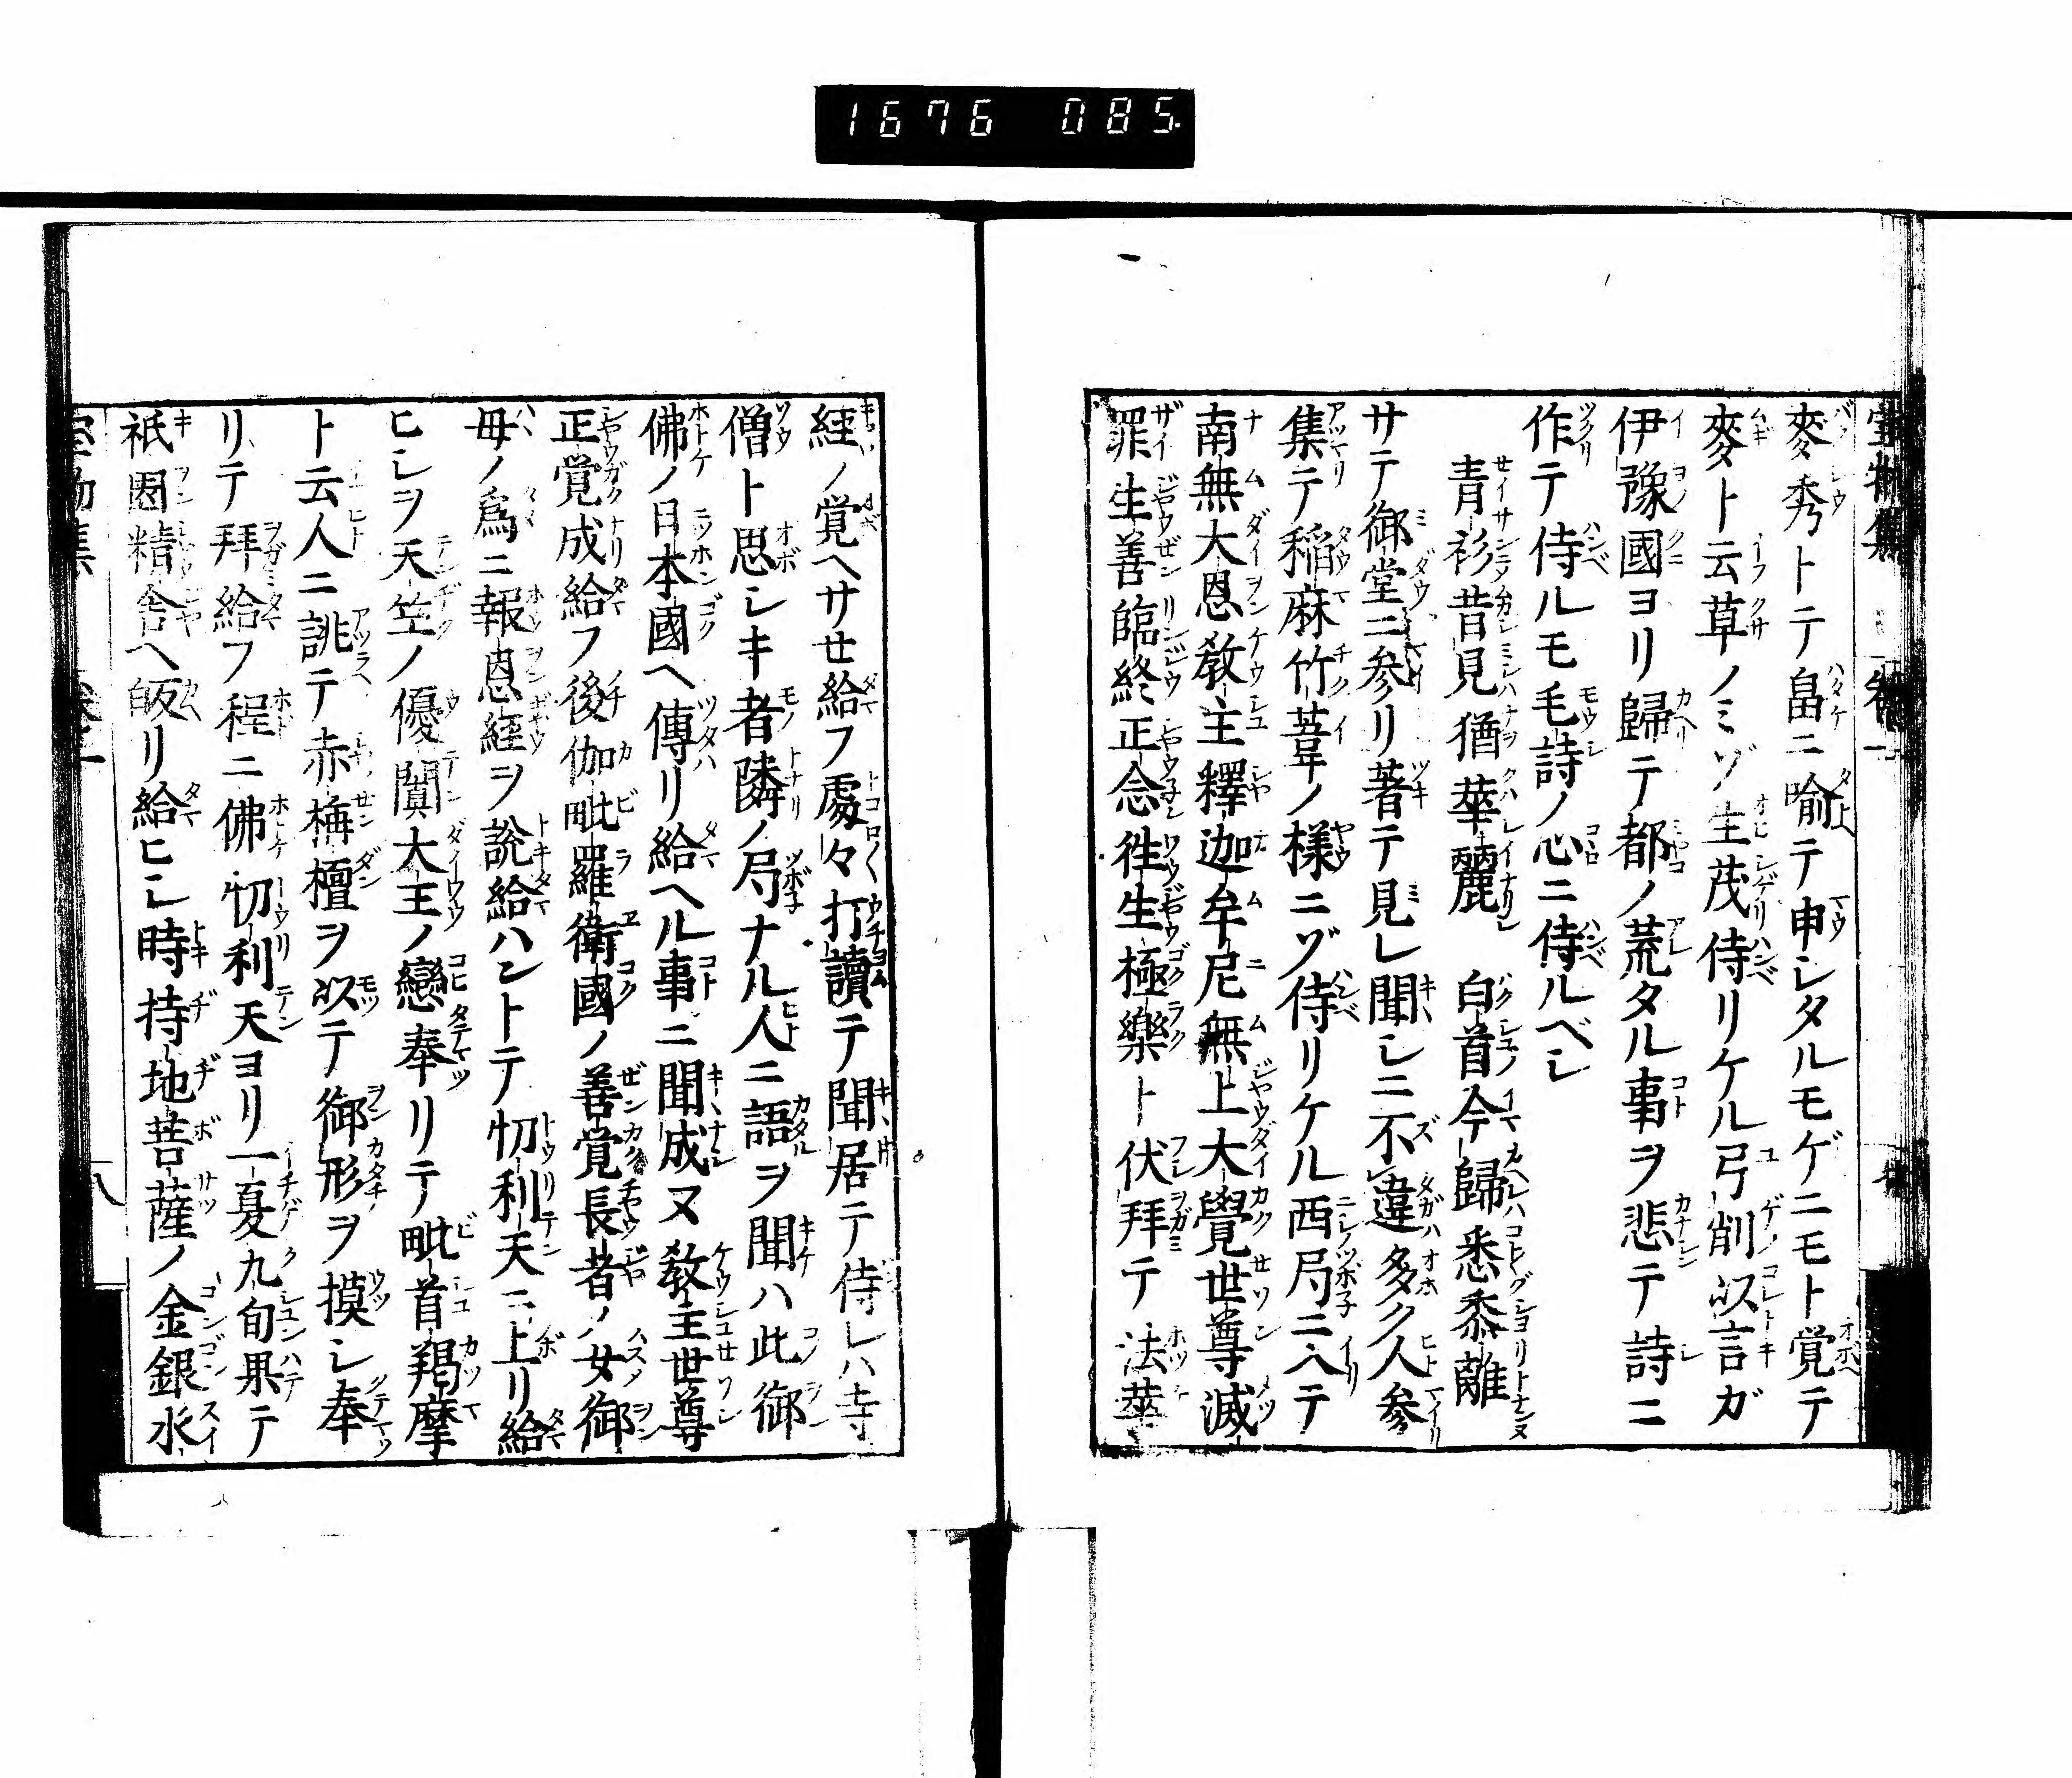 1676 085.
寳物集 巻一
麥秀トテ畠ニ喻テ申シタルモゲニモト覚テ
麥ト云草ノミゾ生茂侍リケル弓削以言ガ
伊豫國ヨリ歸テ都ノ荒タル事ヲ悲テ詩ニ
作テ侍ルモ毛詩ノ心ニ侍ルベシ
青衫昔見猶華麗 白首今歸悉黍離
サテ御堂ニ参リ著テ見レ聞シニ不違多ク人参
集テ稲麻竹葦ノ樣ニゾ侍リケル西局ニ入テ
南無大恩教主釋迦牟尼無上大覺世尊滅
罪生善臨終正念徃生極樂ト伏拜テ法華
経ノ覚ヘサせ給フ處々打讀テ聞居テ侍レハ寺
僧ト思シキ者隣ノ局ナル人ニ語ヲ聞ハ此御
佛ノ日本國ヘ傳リ給ヘル事ニ聞成ヌ教主世尊
正覚成給フ後伽毗羅衛國ノ善覚長者ノ女御
母ノ爲ニ報恩経ヲ說給ハントテ忉利天ニ上リ給
ヒシヲ天竺ノ優闐大王ノ戀奉リテ毗首羯摩
ト云人ニ誂テ赤栴檀ヲ以テ御形ヲ摸シ奉
リテ拜給フ程ニ佛忉利天ヨリ一夏九旬果テ
祇園精舎ヘ皈リ給ヒシ時持地菩薩ノ金銀水
八